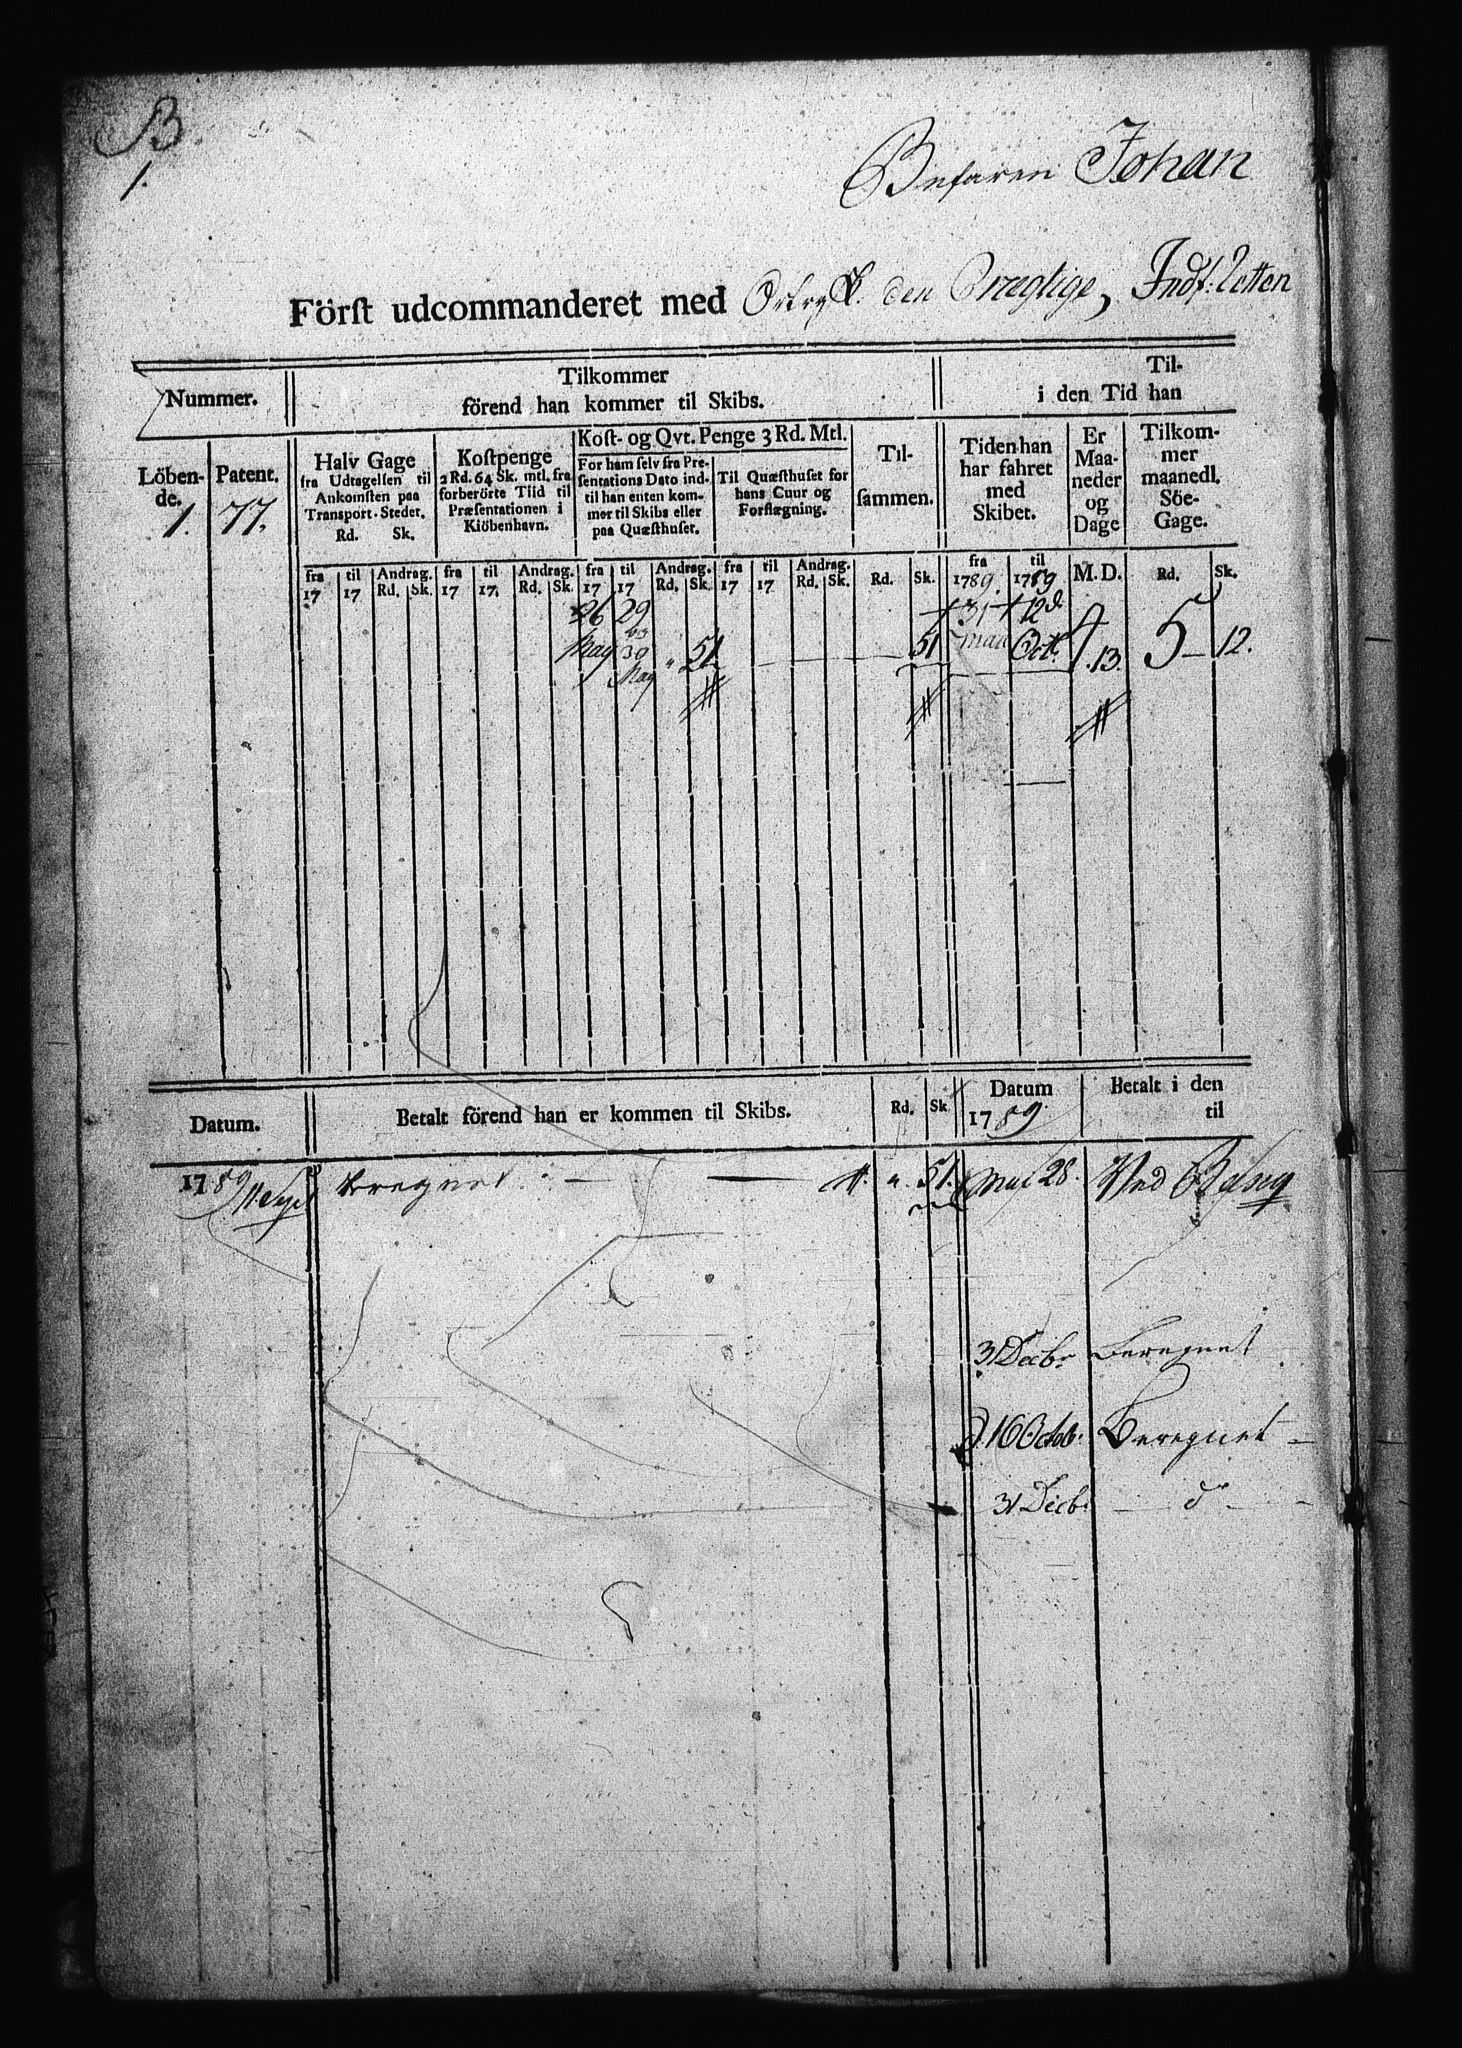 B
1.
Befaren Johan
Först udcommanderet med Orlog S. den Prægtige, Indf:
Nummer.
Tilkommer
förend han kommer til Skibs.
Til-
i den Tid han
Löben-
de.
1.
Patent.
77.
Halv Gage
fra Udtagelsen til
Ankomsten paa
Transport-Stedet.
Rd. Sk.
Kostpenge
2 Rd. 64 Sk. mtl. fra
forberörte Tiid til
Præsentationen i
Kiöbenhavn.
Kost- og Qvt. Penge 3 Rd. Mtl.
For ham selv fra Pre-
sentations Dato ind-
til han enten kom-
mer til Skibs eller
paa Quæsthuset.
Til Quæsthuset for
hans Cuur og
Forflægning.
Til-
sammen.
Tiden han
har fahret
med
Skibet.
Er
Maa-
neder
og
Dage
Tilkom-
mer
maanedl.
Söe-
Gage.
fra til Andrag. fra til Andrag. fra til Andrag. fra til Andrag. Rd. Sk. fra til M. D. Rd. Sk.
17 17 Rd. Sk. 17 17. Rd. Sk. 17 17 Rd. Sk. 17 17 Rd. Sk. 1789. 1789
26 29 31 12
May 30 May " 51 51 Maii Octb. 4. 13. 5 12.
Datum.
Betalt förend han er kommen til Skibs.
Rd. Sk.
Datum
1789.
Betalt i den
til
1789 beregnet " 51. Maj 28. Ved
31 Decbr beregnet
d. 16 Octob: Beregnet
31 Decb: do